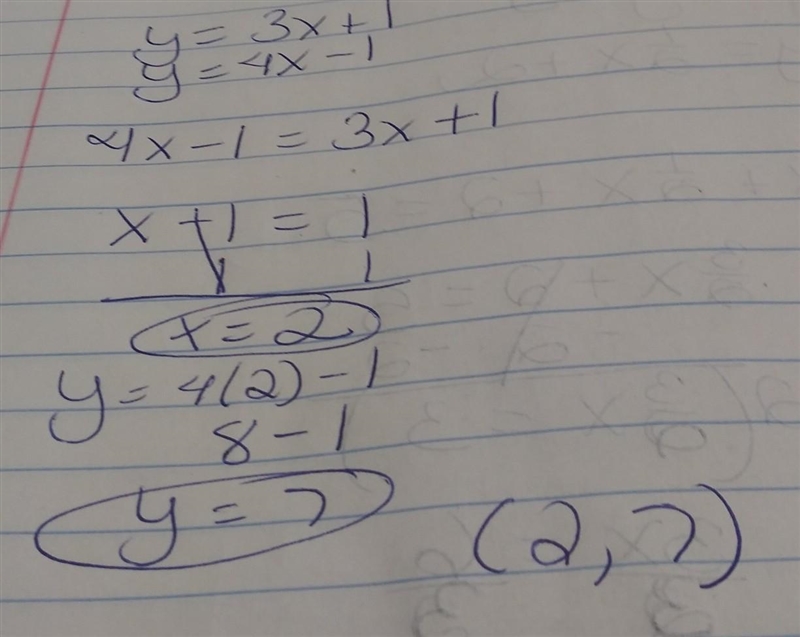 y = 3x + 1
y = 4x - 1
4x - 1 = 3x + 1
x + 1 = 1
1 1
x = 2
y = 4(2) - 1
8 - 1
y = 7
(2, 7)